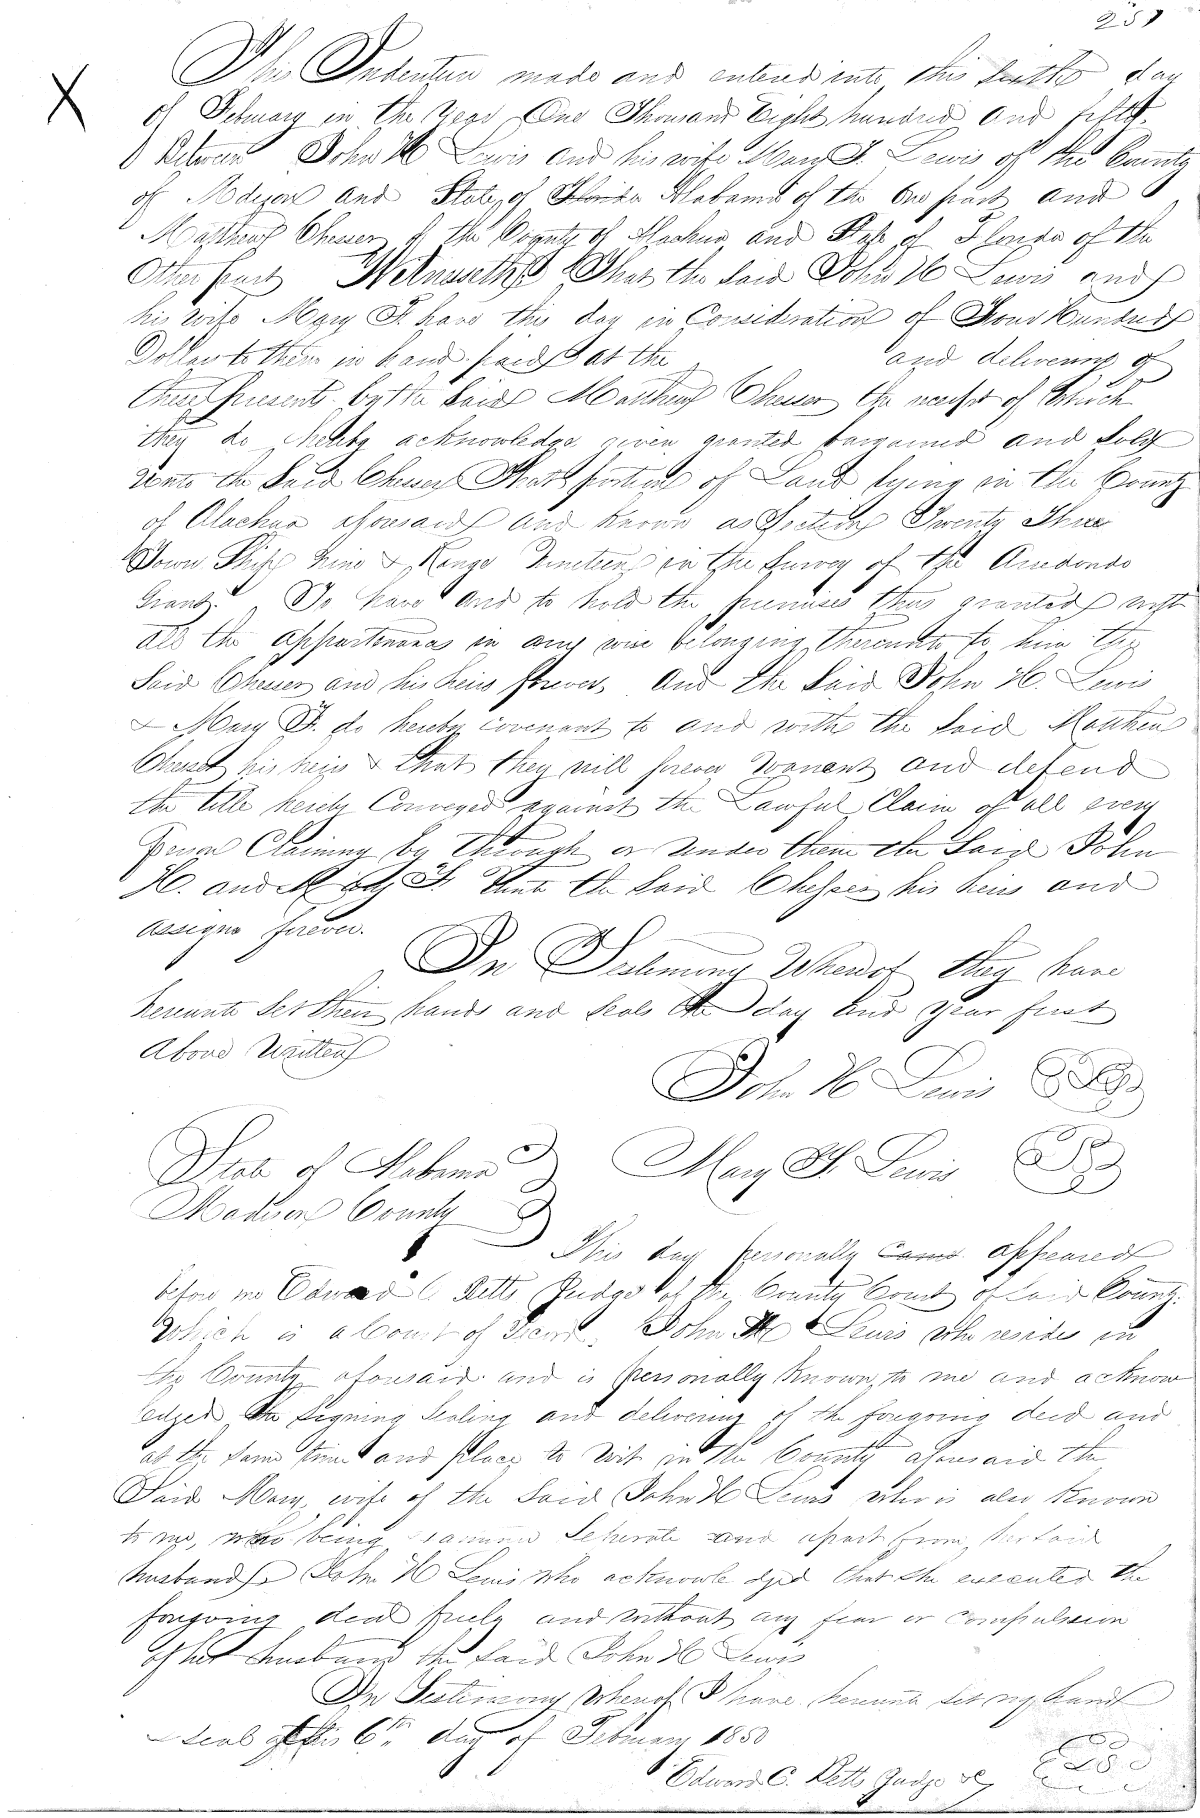 251
X
This Indenture made and entered into this Sixth day
of February in the Year One Thousand Eight hundred and fifty
Between John H Lewis and his wife Mary F. Lewis of the County
of Madison and State of Florida Alabama of the one part and
Matthew Chesser of the County of Alachua and State of Florida of the
Other part Witnesseth That the Said John H Lewis and
his wife Mary F. have this day in Consideration of Four Hundred
Dollars to them in hand paid at the and delivering of
these present by the Said Matthew Chesser the receipt of which
they do hereby acknowledge given granted bargained and Sold
Unto the Said Chesser That portion of Land lying in the County
of Alachua aforesaid and Known as Section Twenty Three
Town Ship Nine & Range Nineteen in the Survey of the Arredondo
Grant. To have and to hold the premises thus granted with
all the appurtenances in any wise belonging thereunto to him the
Said Chesser and his heirs forever. And the Said John H. Lewis
& Mary F. do hereby covenant to and with the Said Matthew
Chesser his heirs & that they will forever Warrant and defend
the title hereby Conveyed against the Lawful Claim of all every
Person Claiming by through or Under them the Said John
H. and Mary F. Unto the Said Chesser his heirs and
assigns forever.
In Testimony Whereof they have
hereunto Set their hands and seals the day and year first
Above Written
John H Lewis
State of Alabama Mary F. Lewis
Madison County
This day personally came appeared
before me Edward C Betts Judge of the County Court of said County
Which is a Court of Record, John H Lewis who resides in
the County aforesaid and is personally Known to me and acknow
ledged the Signing Sealing and delivering of the foregoing deed and
at the same time and place to wit in the County aforesaid the
Said Mary, wife of the Said John H Lewis who is also Known
to me, who being examined Seperate and apart from her said
husband John H Lewis who acknowledged that She executed the
foregoing deed freely and without any fear or compulsion
of her husband the Said John H Lewis
In Testimony whereof I have hereunto set my hand
& seal this 6th day of February 1850
Edward C. Betts Judge &c